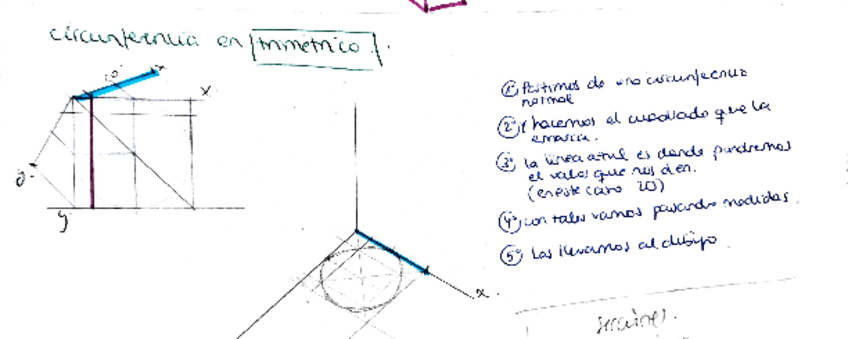 circunferencia en trimétrico.
20
x
x
y
y
x.
1º Partimos de una circunferencia
normal
2º hacemos el cuadrado que la
enmarca.
3º la línea azul es donde pondremos
el valor que nos den.
(en este caso 20)
4º con tales vamos pasando medidas.
5º Las llevamos al dibujo.